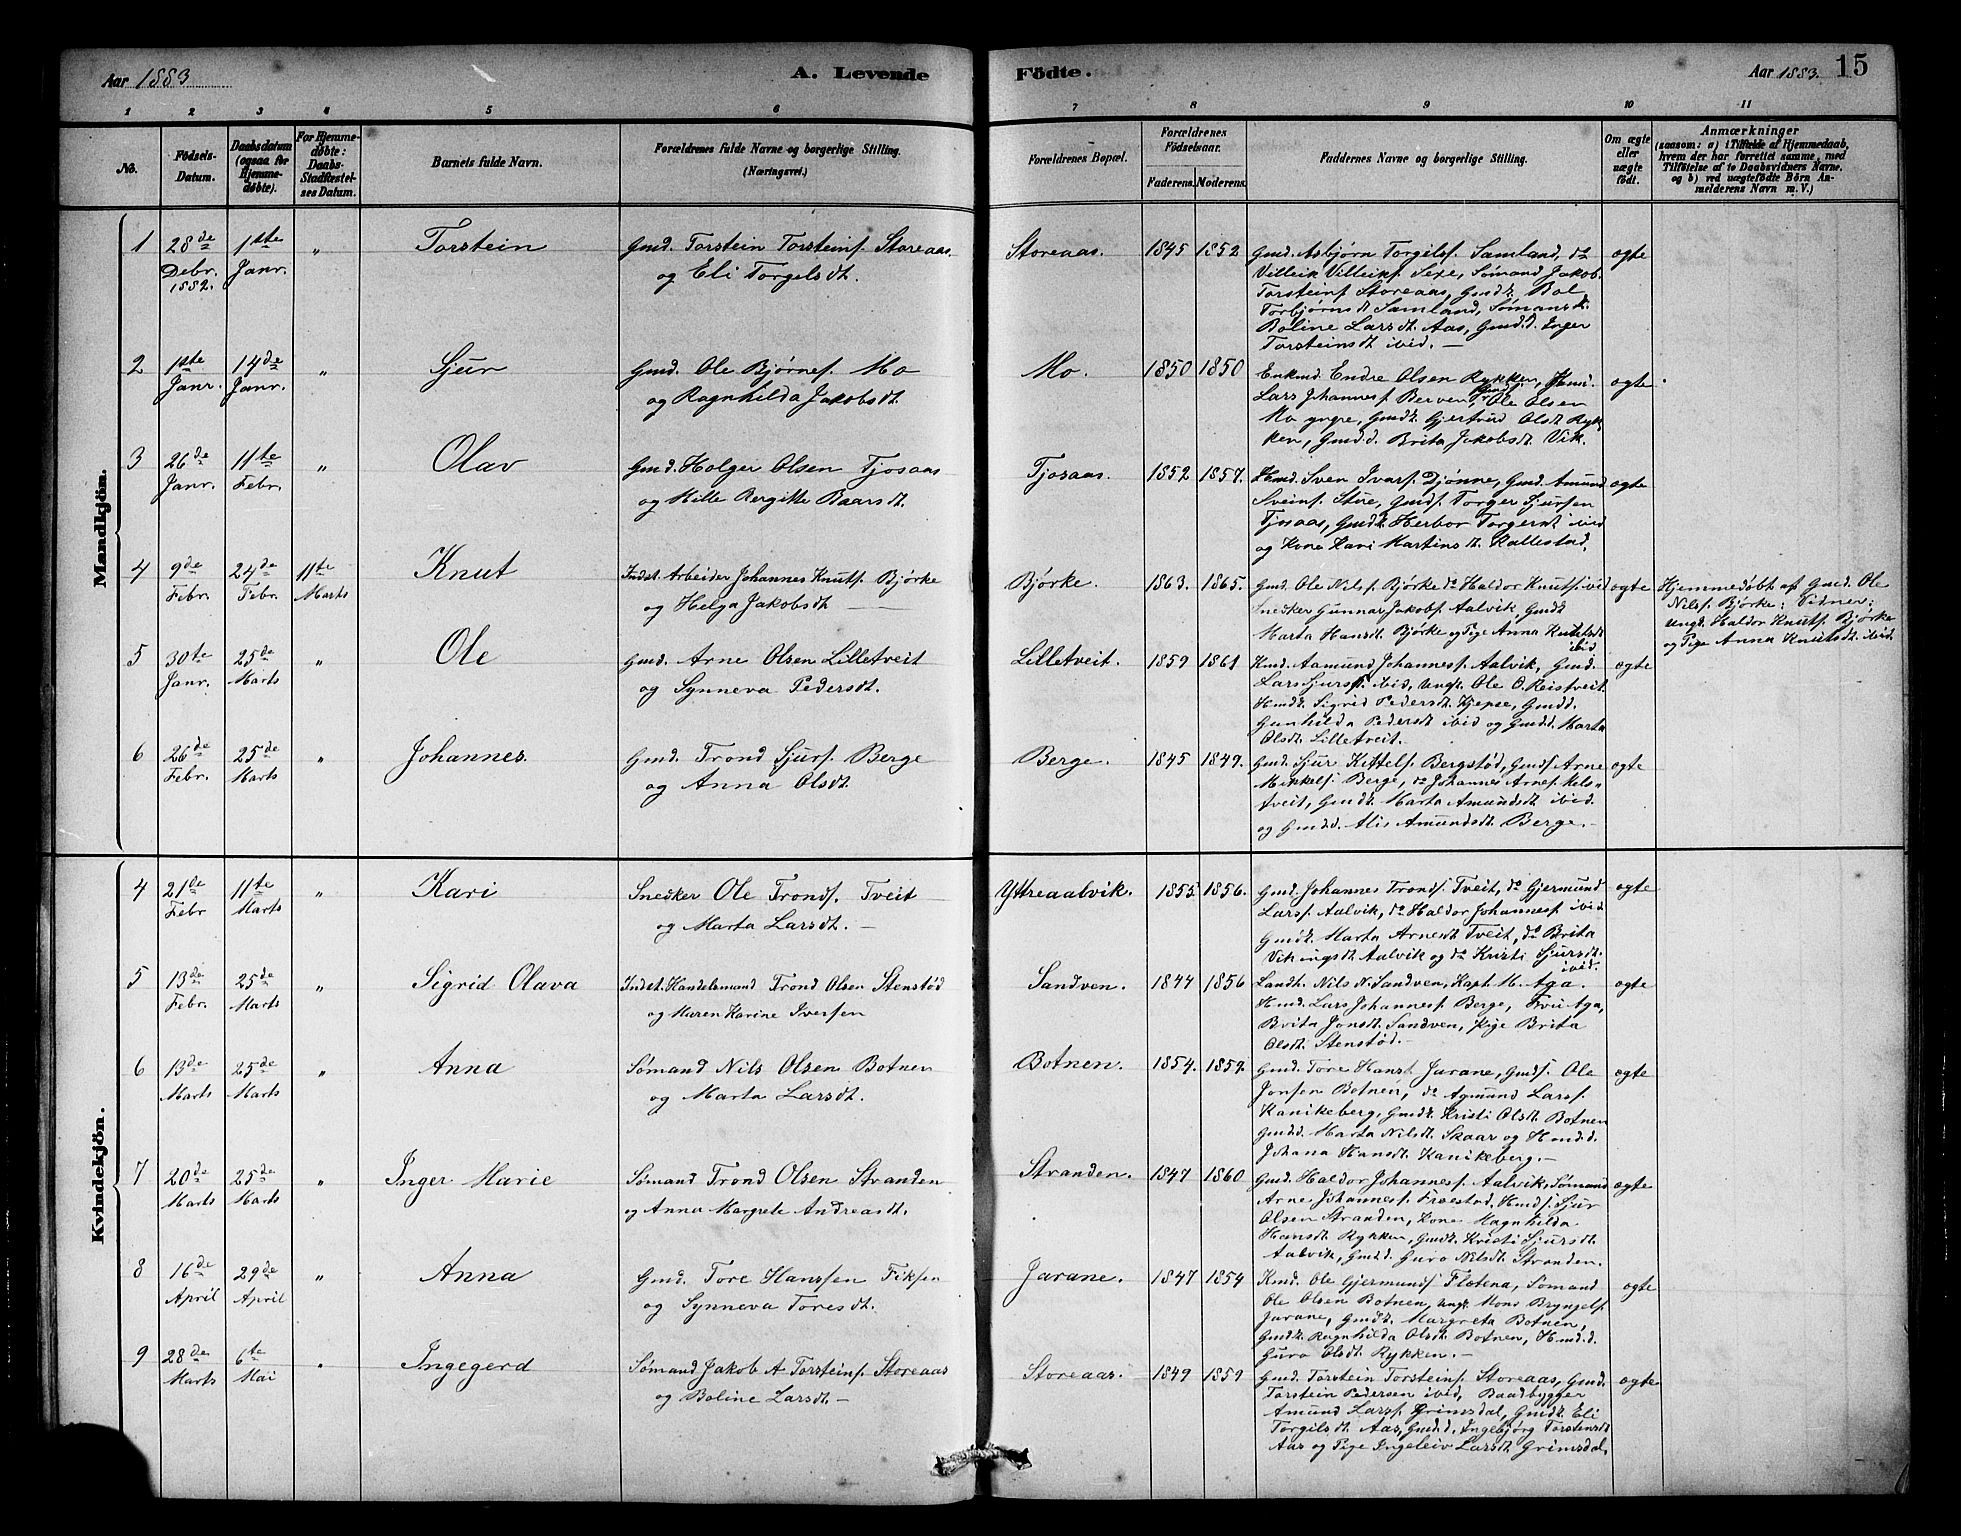 Aar 1883
A. Levende
Fødte.
Aar 1883.
15
1 2 3 4 5 6 7 8 9 10 11
No.
Fødsels-
Datum.
Daabsdatum
(ogsaa for
Hjemme-
døbte).
For Hjemme-
døbte:
Daabs-
Stadfæstel-
ses Datum.
Barnets fulde Navn.
Forældrenes fulde Navne og borgerlige Stilling.
(Næringsvei.)
Forældrenes Bopæl.
Forældrenes
Fødselsaar.
Faderens. Moderens.
Faddernes Navne og borgerlige Stilling.
Om ægte
eller
uægte
født.
Anmærkninger
(saasom: a) i Tilfælde af Hjemmedaab,
hvem der har forrettet samme, med
Tilføielse af to Daabsvidners Navne,
og b) ved uægtefødte Børn An-
melderens Navn m. V.)
Mandkjön.
1 28de Debr. 1882. 1ste Janr. " Torstein
Gmd. Torstein Torsteins. Storeaas
og Eli Torgelsdt.
Storeaas. 1845 1852
Gmd. Asbjørn Torgils. Samland, do
Villeik Villeiks. Sexe, Sømand Jakob
Torsteins. Storeaas, Gmdk. Bol
Torbjørnsdt Samland, Sømansk.
Boline Larsdt. Aas, Gmd.d. Inger
Torsteinsdt ibid. —
ægte
2 1ste Janr. 14de Janr. " Sjur
Gmd. Ole Bjørnes. Mo
og Ragnhilda Jakobsdt.
Mo. 1850 1850
Enkmd. Endre Olsen Rykken, Hmd.
Lars Johannes. Berven, Gmds. Ole Olsen
Mo yngre, Gmdk. Gjertrud Olsdt Ryk-
ken, Gmd.d. Brita Jakobsdt Vik.
ægte
3 26de Janr. 11te Febr. " Olav
Gmd. Holger Olsen Tjosaas
og Mille Bergitte Baarsdt.
Tjosaas. 1852 1857.
Hmd. Sven Ivars. Djønne, Gmd. Amund
Sveins. Stue, Gmds. Torger Sjursen
Tjosaas, Gmdk. Herbor Torgersdt ibid
og Kone Kari Martinsdt. Kallestad.
ægte
4 9de Febr. 24de Febr. 11te Marts Knut
Indst. Arbeider Johannes Knuts. Bjørke
og Helga Jakobsdt —
Bjørke. 1863. 1865.
Gmd. Ole Nils. Bjørke do Haldor Knuts. ibid
Snedker Gunnar Jakobs. Aalvik Gmdk
Marta Hansdt. Bjørke og Pige Anna Knutsdt
ibid
ægte
Hjemmedøbt af Gmd. Ole
Nils. Bjørke; Vidner:
Ungd. Haldor Knuts. Bjørke
og Pige Anna Knutsdt. ibid
5 30te Janr. 25de Marts " Ole
Gmd. Arne Olsen Lilletveit
og Synneva Pedersdt.
Lilletveit. 1859 1861
Hmd. Aamund Johannes. Aalvik, Gmd.
Lars Sjurs. ibid, Ungk. Ole O. Reistveit
Hmdk. Sigrid Pedersdt Kjepse, Gmdd.
Gunhilda Pedersdt ibid og Gmdd. Marta
Olsdt. Lilletveit.
ægte
6 26de Febr. 25de Marts " Johannes.
Gmd. Trond Sjurs. Berge
og Anna Olsdt.
Berge. 1845 1849.
Gmd. Sjur Kittels. Bergstød, Gmds. Arne
Mikkels. Berge, do Johannes Arnes. Mels-
tveit, Gmdk. Marta Amundsdt ibid.
og Gmd.d. Alis Amundsdt. Berge.—
ægte
Kvindekjön.
4 21de Febr 11te Marts " Kari
Snedker Ole Tronds. Tveit
og Marta Larsdt. —
Yttreaalvik. 1855 1856.
Gmd. Johannes Tronds. Tveit, do Gjermund
Lars. Aalvik, do Haldor Johannes. ibid
Gmdk. Marta Arnesdt Tveit, do Brita
Vikingsdt Aalvik og do Kristi Sjursdt.
ibid.
ægte
5 13de Febr. 25de Marts " Sigrid Olava
Indst. Handelsmand Trond Olsen Stenstød
og Maren Karine Iversen
Sandven. 1844 1856
Landh. Nils N. Sandven, Kapt. M. Aga.
Hmd. Lars Johannes. Berge, Fru Aga,
Brita Jonsdt. Sandven, Pige Brita
Olsdt. Stenstød.—
ægte
6 13de Marts 25de Marts " Anna
Sømand Nils Olsen Botnen
og Marta Larsdt.
Botnen. 1854. 1859.
Gmd. Tore Hans. Jarane, Gmds. Ole
Jonsen Botnen, do Agmund Lars.
Kanikeberg, Gmdk. Kristi Olsdt. Botnen
Gmd.d. Marta Nilsdt. Skaar og Hmd.d.
Johana Hansdt. Kanikeberg.—
ægte
7 20de Marts 25de Marts " Inger Marie
Sømand Trond Olsen Stranden
og Anna Margrete Andreasdt.
Stranden. 1847 1860
Gmd. Haldor Johannes. Aalvik, Sømand
Arne Johannes. Fraestad, Hmds. Sjur
Olsen Stranden, Kone Magnhilda
Hansdt. Rykken, Gmdk. Kristi Sjursdt
Aalvik, Gmdd. Guro Nilsdt Stranden.
ægte
8 16de April 29de April " Anna
Gmd. Tore Hanssen Fiksen
og Synneva Toresdt.
Jarane. 1847 1854
Kmd. Ole Gjermunds. Flotena, Sømand
Ole Olsen Botnen, Ungk. Mons Bryngels.
Jarane, Gmdk. Margreta Botnen,
Gmdk. Ragnhilda Olsdt Botnen, Hmd.d.
Guro Olsdt Rykken.—
ægte
9 28de Marts 6te Mai " Ingegerd
Sømand Jakob A Torsteins. Storeaas
og Boline Larsdt. —
Storeaas. 1849 1859
Gmd. Torstein Torsteins. Storeaas, Gmd.
Torstein Pedersen ibid, Baadbygger
Amund Lars. Grimsdal, Gmdk. Eli
Torgilsdt Aas, Gmd.d. Ingebjørg Torsteinsdt
Aas og Pige Ingeleiv Larsdt Grimsdal.
ægte